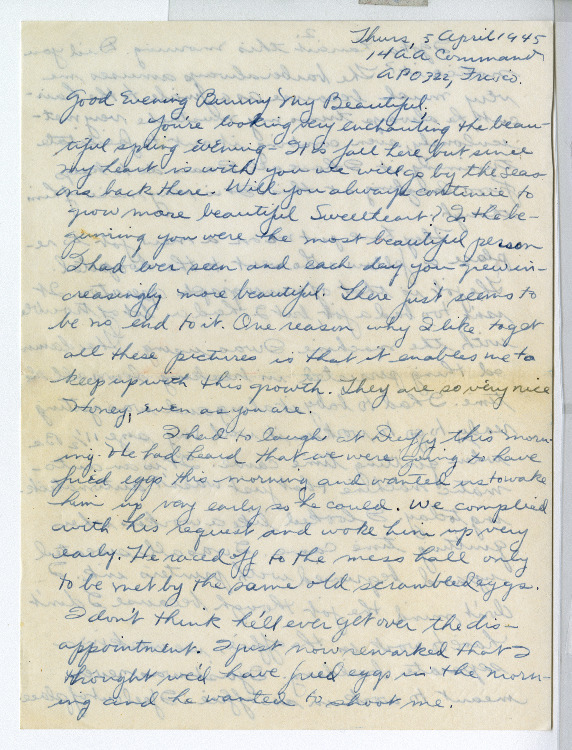 Thurs, 5 April 1945
14 AA Command
APO 322, Frisco.
Good Evening Bunny My Beautiful,
You're looking very enchanting the beau-
tiful spring evening. It is fall here but since
my heart is with you we will go by the seas-
ons back there. Will you always continue to
grow more beautiful Sweetheart? In the be-
ginning you were the most beautiful person
I had ever seen and each day you grew in-
creasingly more beautiful. There just seems to
be no end to it. One reason why I like to get
all these pictures is that it enables me to
keep up with this growth. They are so very nice
Honey, even as you are.
I had to laugh at Duffy this morn-
ing. He had heard that we were going to have
fried eggs this morning and wanted us to wake
him up very early so he could. We complied
with his request and woke him up very
early. He raced off to the mess hall only
to be met by the same old scrambled eggs.
I don't think he'll ever get over the dis-
appointment. I just now remarked that I
thought we'd have fried eggs in the morn-
ing and he wanted to shoot me.